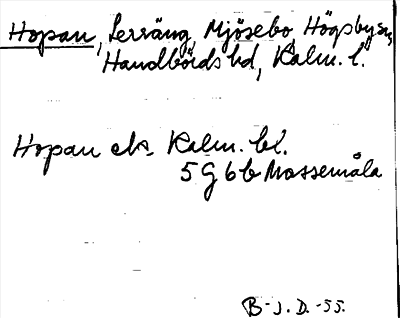 Hopan, Lerräng, Mjösebo, Högsby sn,
Handbörds hd, Kalm. l.
Hopan ek. Kalm. bl.
5 G 6 b Mossemåla
B-J. D. -55.